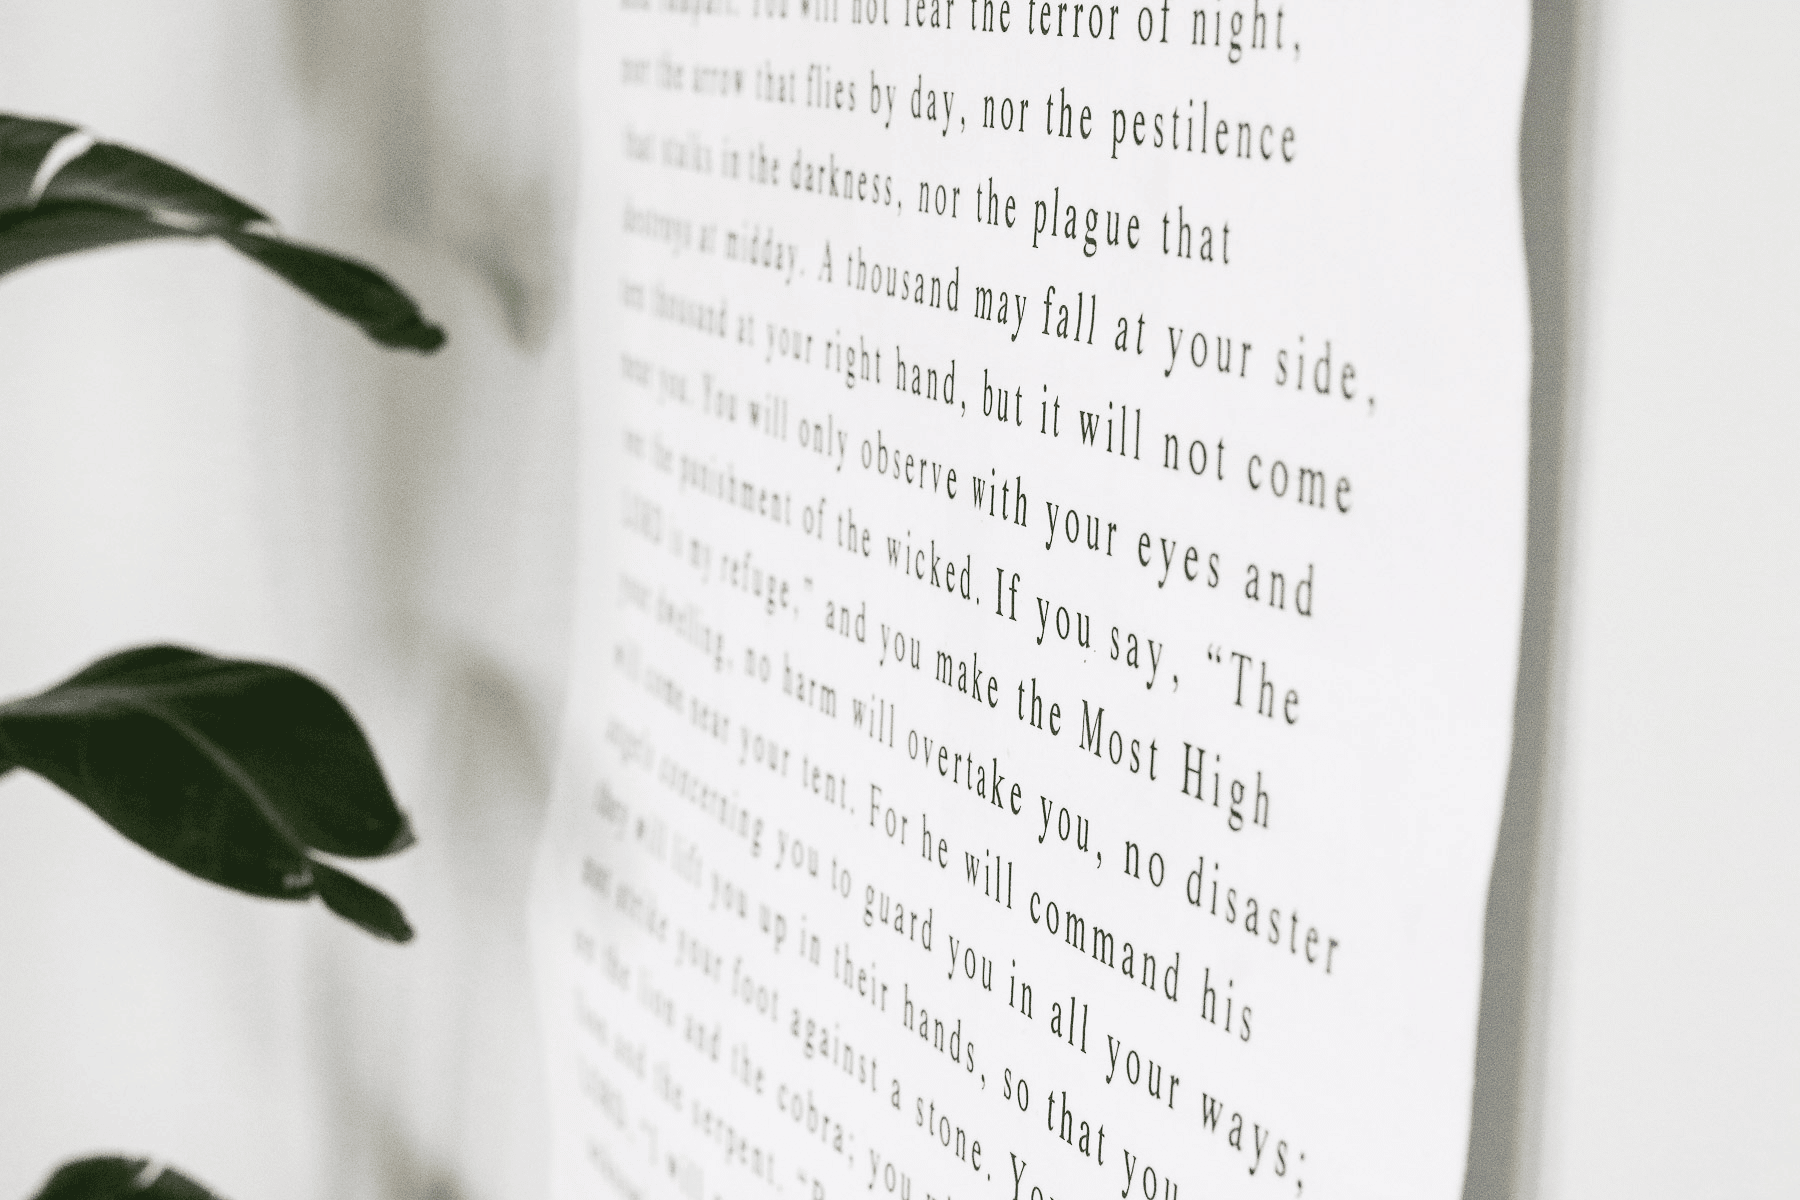 and rampart. You will not fear the terror of night,
nor the arrow that flies by day, nor the pestilence
that stalks in the darkness, nor the plague that
destroys at midday. A thousand may fall at your side,
ten thousand at your right hand, but it will not come
near you. You will only observe with your eyes and
see the punishment of the wicked. If you say, “The
LORD is my refuge,” and you make the Most High
your dwelling, no harm will overtake you, no disaster
will come near your tent. For he will command his
angels concerning you to guard you in all your ways;
they will lift you up in their hands, so that you
not strike your foot against a stone. You
on the lion and the cobra; you
lion and the serpent.
LORD, “I will